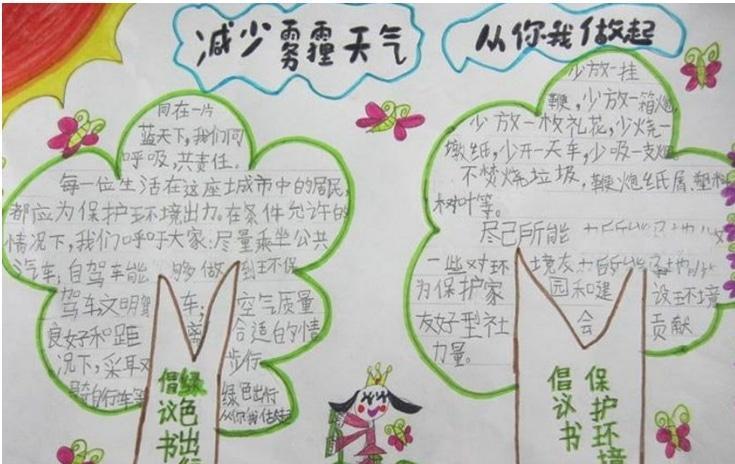 减少雾霾天气
从你我做起
同在一片
蓝天下,我们同
呼吸,共责任。
每一位生活在这座城市中的居民,
都应为保护环境出力。在条件允许的
情况下,我们呼吁大家:尽量乘坐公共
汽车;自驾车能够做到环保
驾车文明驾车;空气质量
良好和距离合适的情
况下,采取步行
骑自行车等绿色出行
从你我做起
绿色出行
倡议书
少放一挂
鞭,少放一箱炮,
少放一枚礼花,少烧一
墩纸,少开一天车,少吸一支烟
不焚烧垃圾,鞭炮纸屑、塑料
树叶等。
尽己所能
一些对环境友
为保护家园和建设环境
友好型社会贡献
力量。
保护环境
倡议书